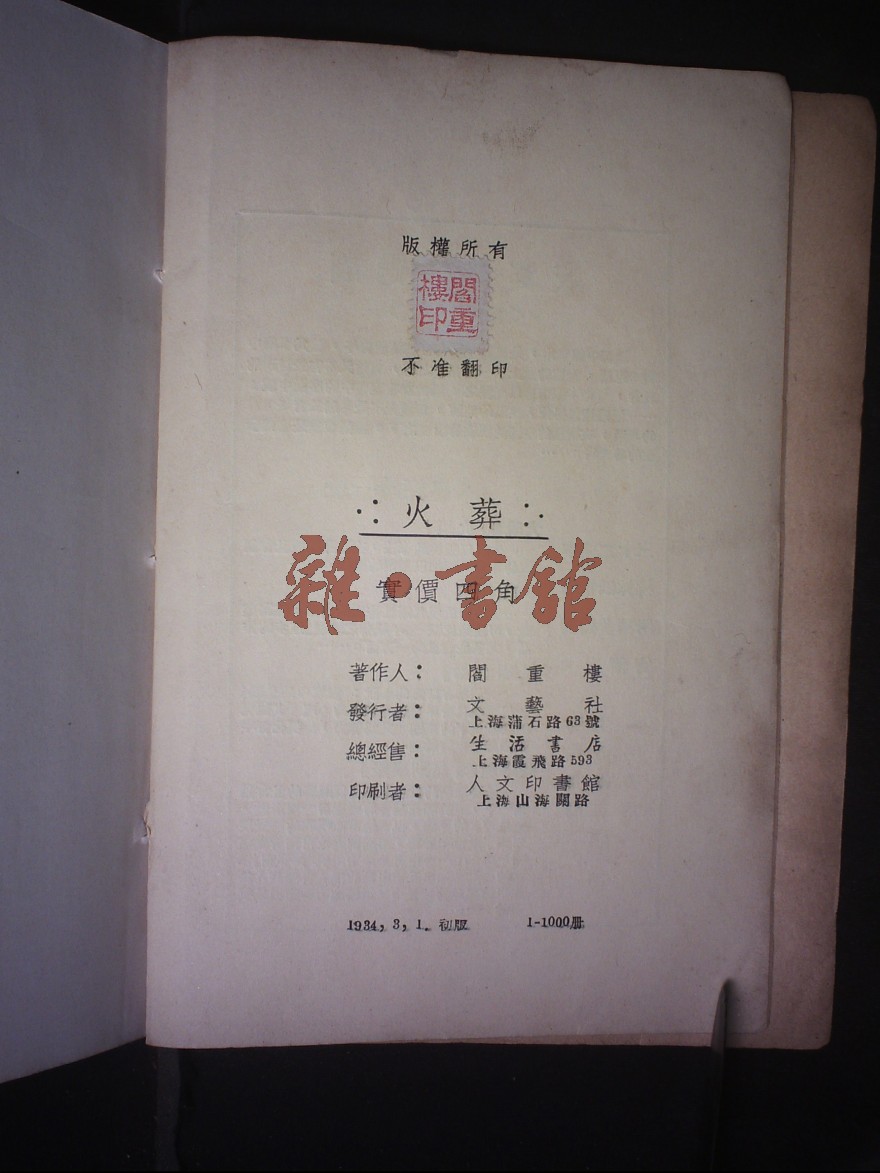 版權所有
閻重樓印
不准翻印
火葬
雜·書館
實價四角
著作人： 閻重樓
發行者： 文藝社
上海蒲石路63號
總經售： 生活書店
上海霞飛路593
印刷者： 人文印書館
上海山海關路
1934,3,1.初版 1-1000冊